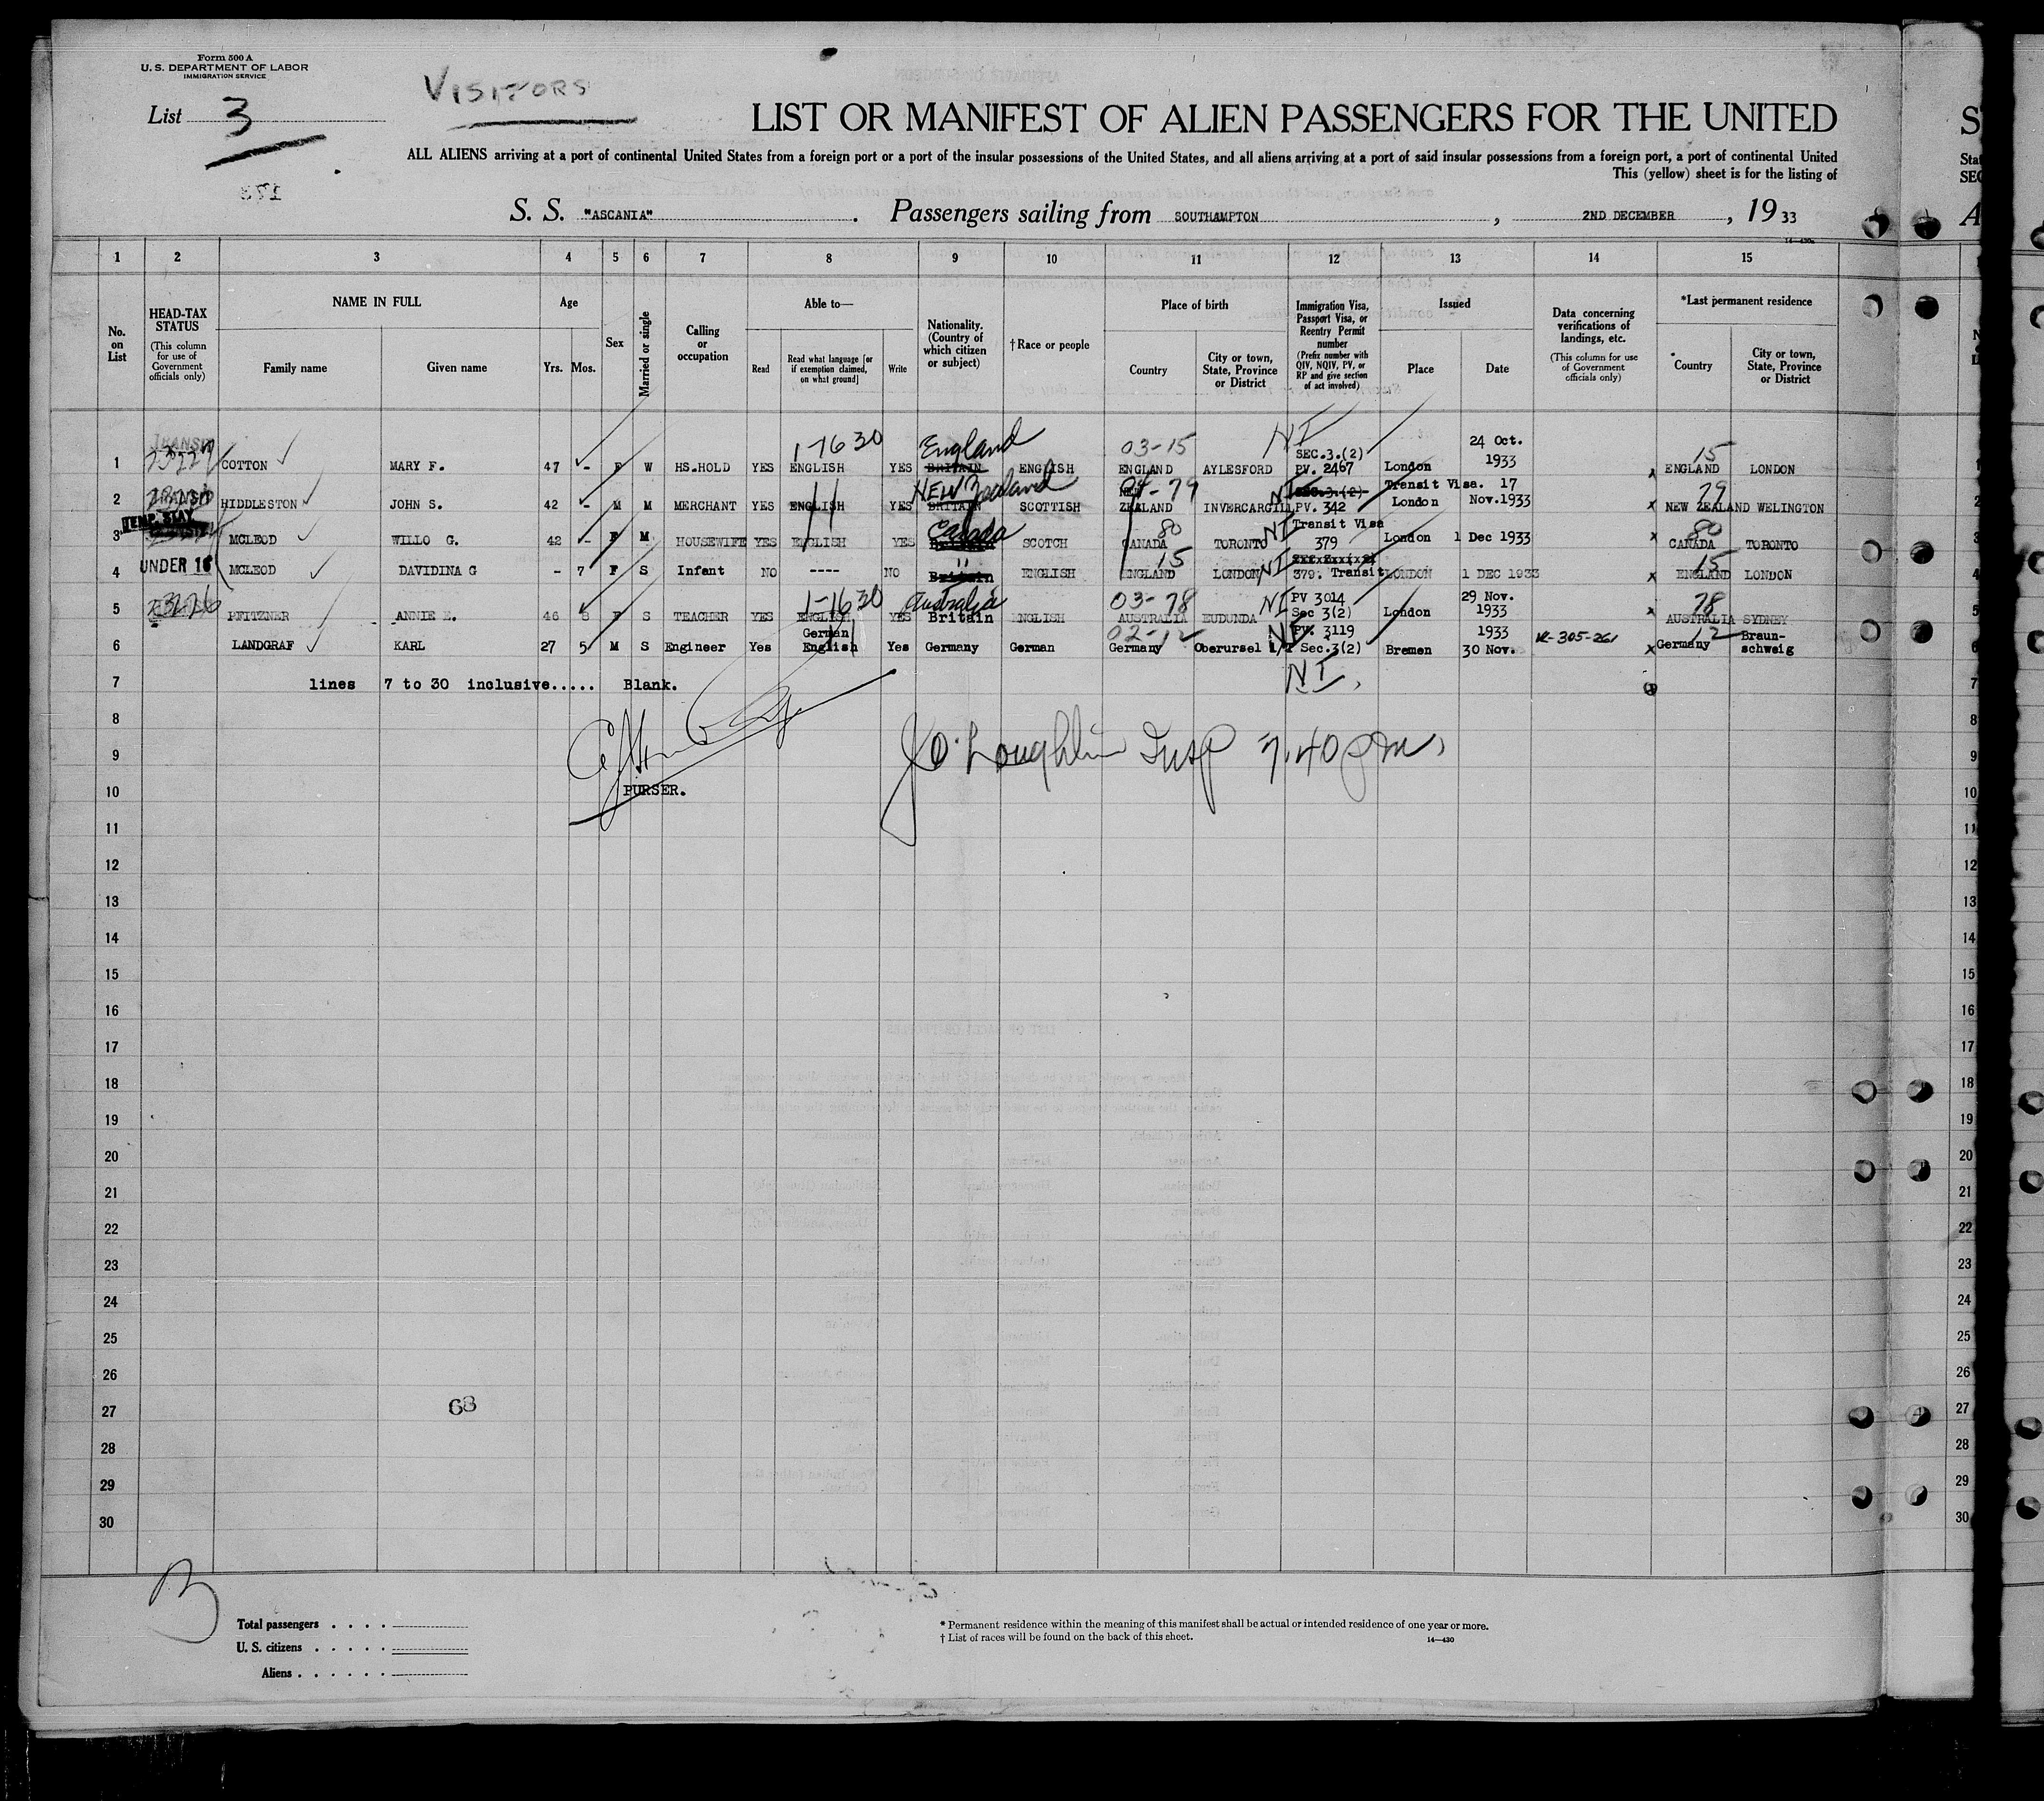 Form 500 A
U. S. DEPARTMENT OF LABOR
IMMIGRATION SERVICE
List 3
VISITORS
LIST OR MANIFEST OF ALIEN PASSENGERS FOR THE UNITED
ALL ALIENS arriving at a port of continental United States from a foreign port or a port of the insular possessions of the United States, and all aliens arriving at a port of said insular possessions from a foreign port, a port of continental United
This (yellow) sheet is for the listing of
S. S. "ASCANIA". Passengers sailing from SOUTHAMPTON, 2ND DECEMBER, 19 33
1 2 3 4 5 6 7 8 9 10 11 12 13 14 15
No. on List
HEAD-TAX STATUS (This column for use of Government officials only)
NAME IN FULL
Family name
Given name
Age
Yrs. Mos.
Sex
Married or single
Calling or occupation
Able to—
Read
Read what language [or if exemption claimed, on what ground]
Write
Nationality. (Country of which citizen or subject)
†Race or people
Place of birth
Country
City or town, State, Province or District
Immigration Visa, Passport Visa, or Reentry Permit number (Prefix number with QIV, NQIV, PV, or RP and give section of act involved)
Issued
Place
Date
Data concerning verifications of landings, etc. (This column for use of Government officials only)
*Last permanent residence
Country
City or town, State, Province or District
1 COTTON MARY F. 47 - F W HS.HOLD YES 1-1630 ENGLISH YES England BRITAIN ENGLISH 03-15 ENGLAND AYLESFORD NI SEC.3.(2) PV. 2467 London 24 Oct. 1933 x 15 ENGLAND LONDON
2 HIDDLESTON JOHN S. 42 - M M MERCHANT YES ENGLISH YES NEW Zealand BRITAIN SCOTTISH NEW ZEALAND 79 INVERCARGILL NI SEC.3.(2) PV. 342 Transit Visa. London 17 Nov.1933 x 79 NEW ZEALAND WELINGTON
TEMP. STAY
3 MCLEOD WILLO G. 42 - F M HOUSEWIFE YES ENGLISH YES Canada SCOTCH 80 CANADA TORONTO NI Transit Visa 379 London 1 Dec 1933 x 80 CANADA TORONTO
UNDER 16
4 MCLEOD DAVIDINA G - 7 F S Infant NO ---- NO " Britain ENGLISH 15 ENGLAND LONDON NI 379. Transit LONDON 1 DEC 1933 x 15 ENGLAND LONDON
5 PFITZNER ANNIE E. 46 8 F S TEACHER YES 1-1630 ENGLISH YES Australia Britain ENGLISH 03-78 AUSTRALIA EUDUNDA NI PV 3014 Sec 3(2) London 29 Nov. 1933 x 78 AUSTRALIA SYDNEY
6 LANDGRAF KARL 27 5 M S Engineer Yes German English Yes Germany German 02-12 Germany Oberursel NI PV. 3119 Sec.3(2) Bremen 1933 30 Nov. x 12 Germany Braunschweig
7 lines 7 to 30 inclusive..... Blank. NI
8
9 7.40 pm
10 PURSER.
11
12
13
14
15
16
17
18
19
20
21
22
23
24
25
26
27 68
28
29
30
B
Total passengers
U. S. citizens
Aliens
* Permanent residence within the meaning of this manifest shall be actual or intended residence of one year or more.
† List of races will be found on the back of this sheet.
14—430